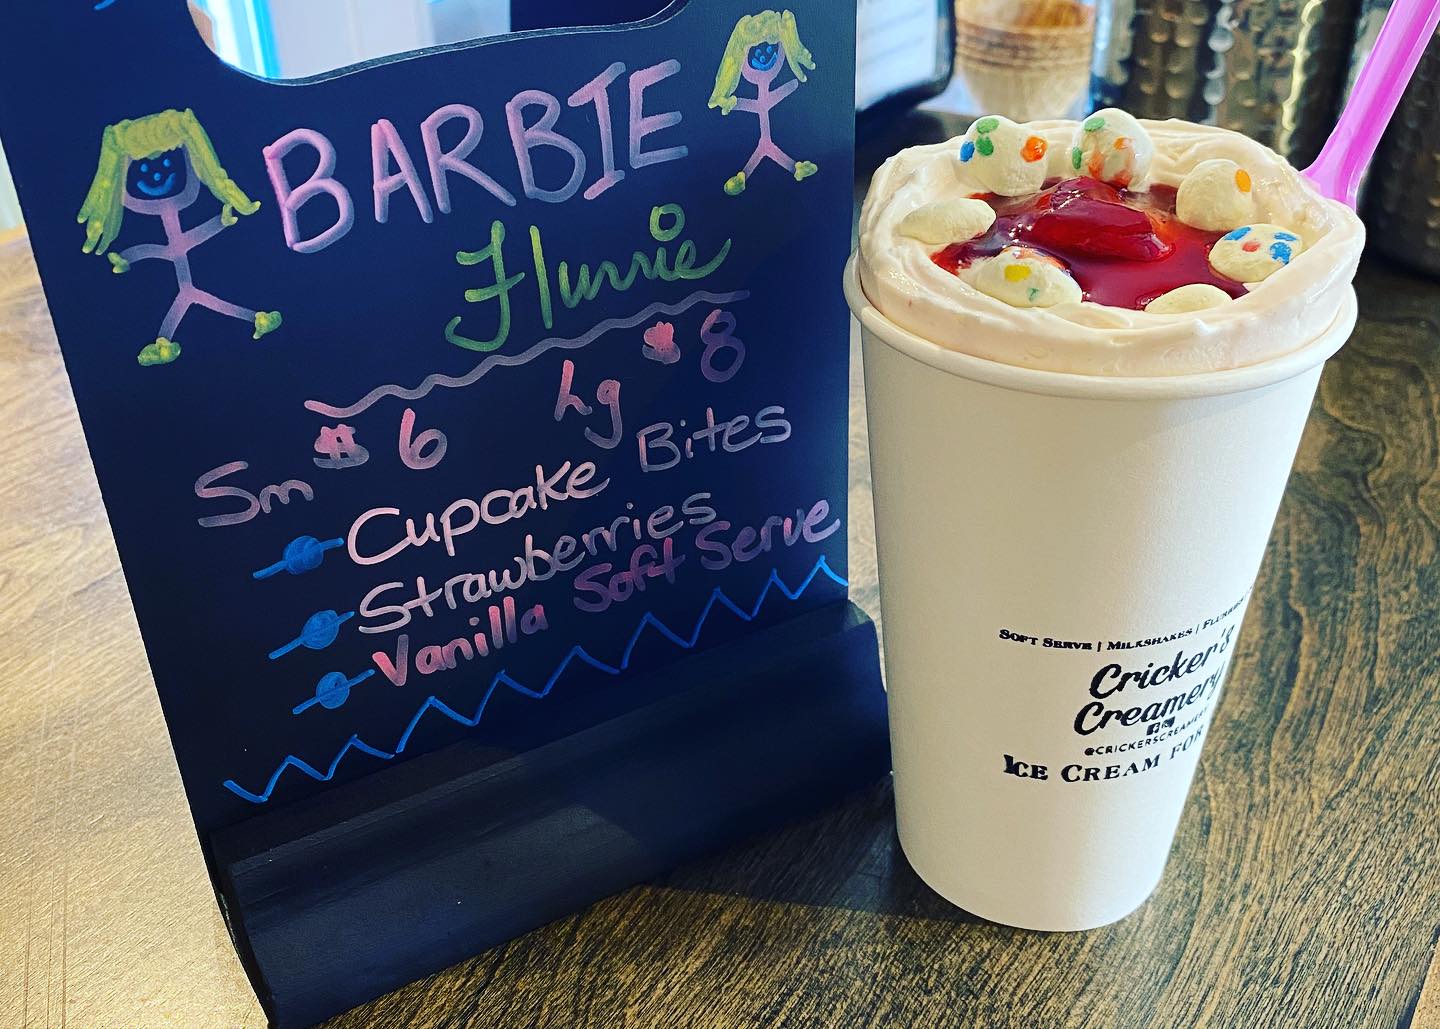 BARBIE
Flurrie
Sm $6 lg $8
Cupcake Bites
Strawberries
Vanilla Soft Serve
Soft Serve | Milkshakes |
Cricker's
Creamery
ICE CREAM FOR